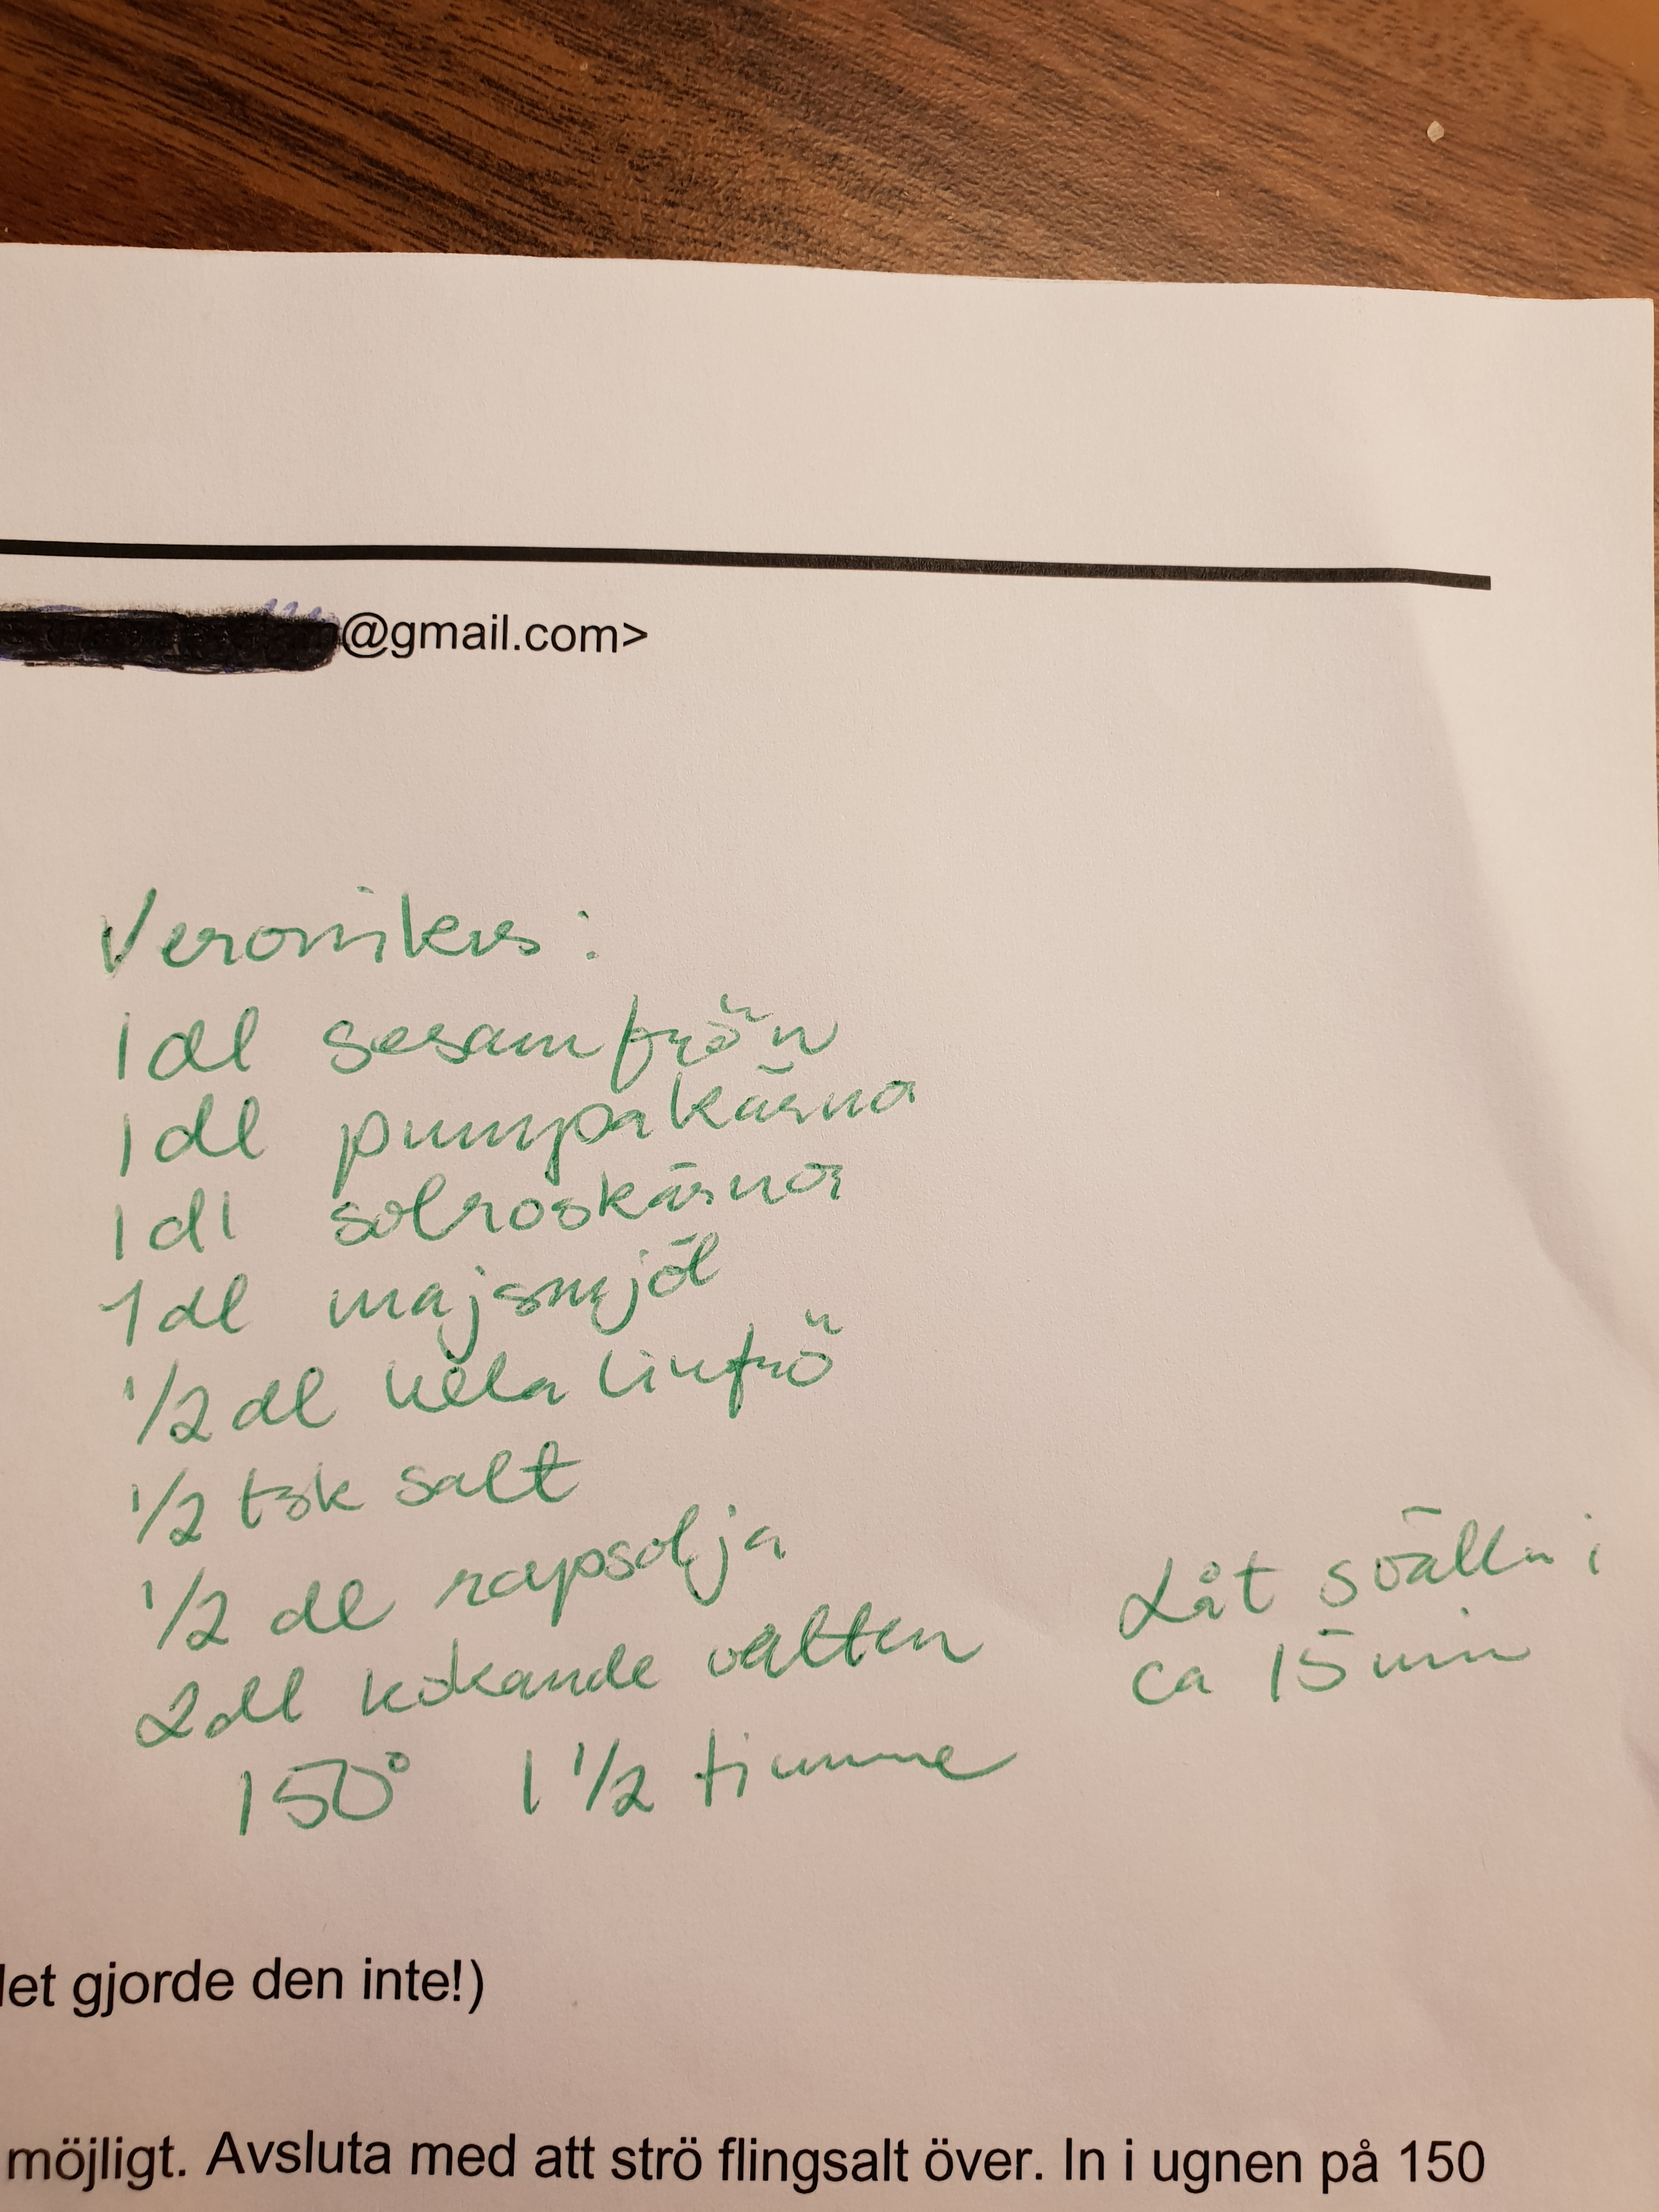 @gmail.com>
Veronikas:
1 dl sesamfrön
1 dl pumpakärnor
1 dl solroskärnor
1 dl majsmjöl
1/2 dl hela linfrö
1/2 tsk salt
1/2 dl rapsolja
2 dl kokande vatten
Låt svälla i
ca 15 min
150° 1 1/2 timme
let gjorde den inte!)
möjligt. Avsluta med att strö flingsalt över. In i ugnen på 150